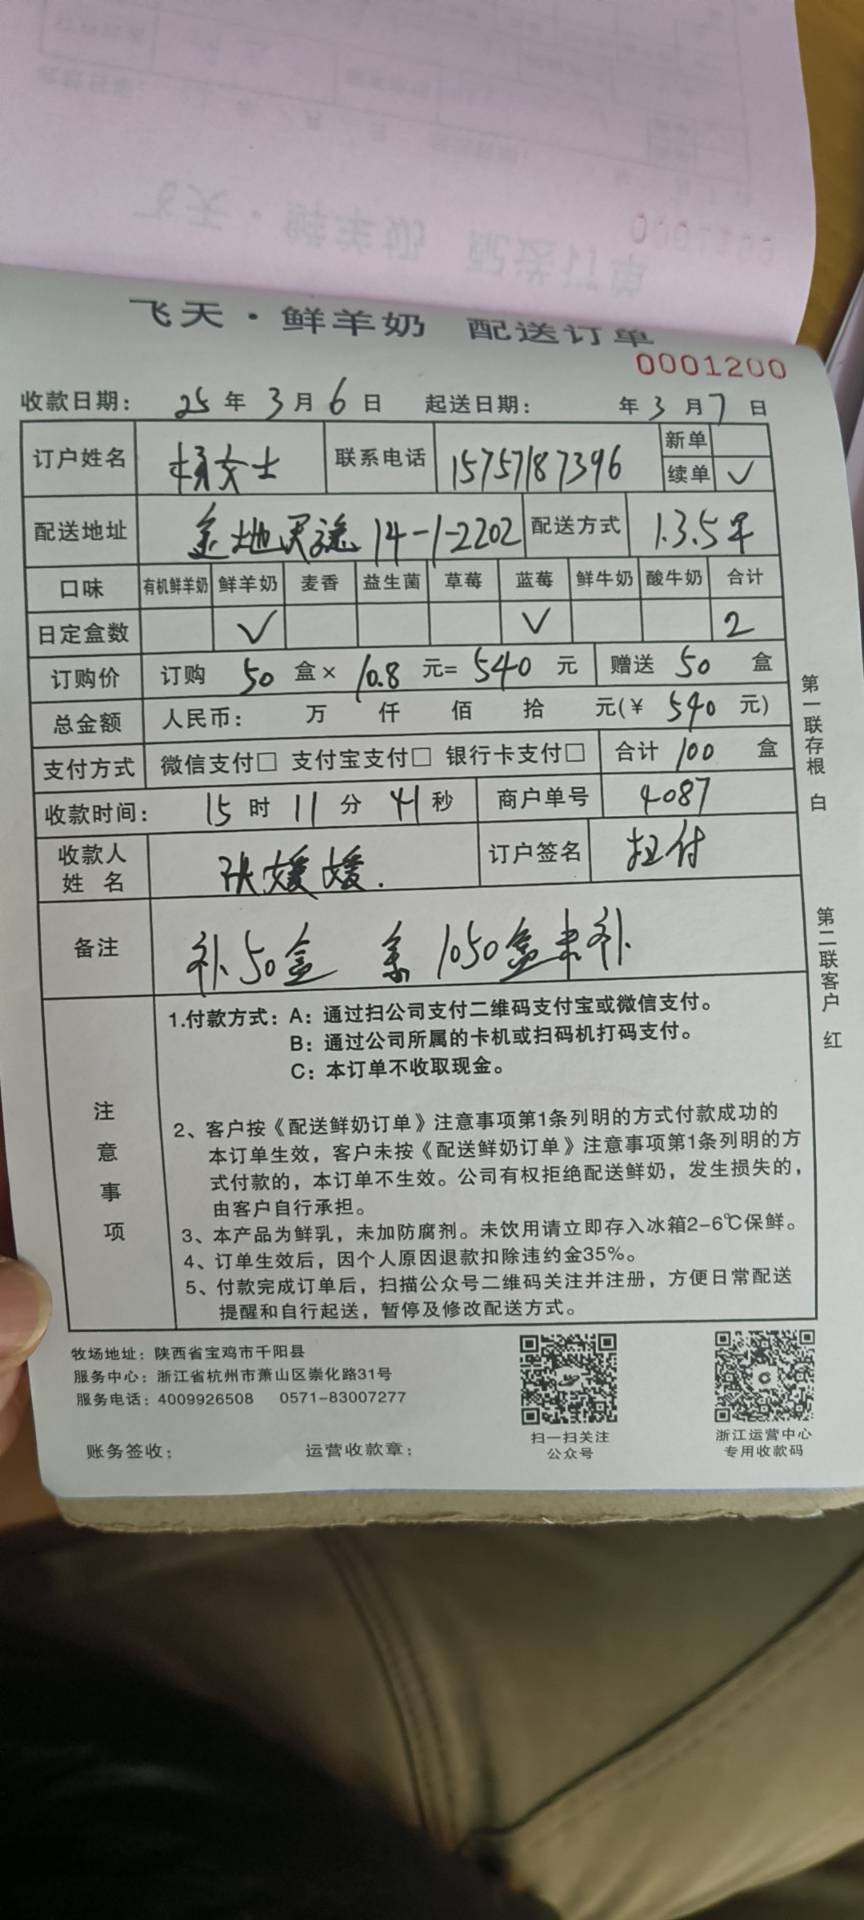 飞天·鲜羊奶 配送订单
0001200
收款日期： 25 年 3 月 6 日 起送日期： 年 3 月 7 日
订户姓名 杨女士 联系电话 15757187396 新单
续单 ✓
配送地址 金地天逸 14-1-2202 配送方式 1.3.5早
口味 有机鲜羊奶 鲜羊奶 麦香 益生菌 草莓 蓝莓 鲜牛奶 酸牛奶 合计
日定盒数 ✓ ✓ 2
订购价 订购 50 盒× 10.8 元= 540 元 赠送 50 盒
总金额 人民币： 万 仟 佰 拾 元(¥ 540 元)
支付方式 微信支付□ 支付宝支付□ 银行卡支付□ 合计 100 盒
收款时间： 15 时 11 分 41 秒 商户单号 4087
收款人姓名 张媛媛. 订户签名 扫付
备注 补50盒 余1050盒未补
注意事项
1.付款方式：A：通过扫公司支付二维码支付宝或微信支付。
B：通过公司所属的卡机或扫码机打码支付。
C：本订单不收取现金。
2、客户按《配送鲜奶订单》注意事项第1条列明的方式付款成功的
本订单生效，客户未按《配送鲜奶订单》注意事项第1条列明的方
式付款的，本订单不生效。公司有权拒绝配送鲜奶，发生损失的，
由客户自行承担。
3、本产品为鲜乳，未加防腐剂。未饮用请立即存入冰箱2-6℃保鲜。
4、订单生效后，因个人原因退款扣除违约金35%。
5、付款完成订单后，扫描公众号二维码关注并注册，方便日常配送
提醒和自行起送，暂停及修改配送方式。
第一联存根 白
第二联客户 红
牧场地址：陕西省宝鸡市千阳县
服务中心：浙江省杭州市萧山区崇化路31号
服务电话：4009926508 0571-83007277
扫一扫关注
公众号
浙江运营中心
专用收款码
账务签收： 运营收款章：